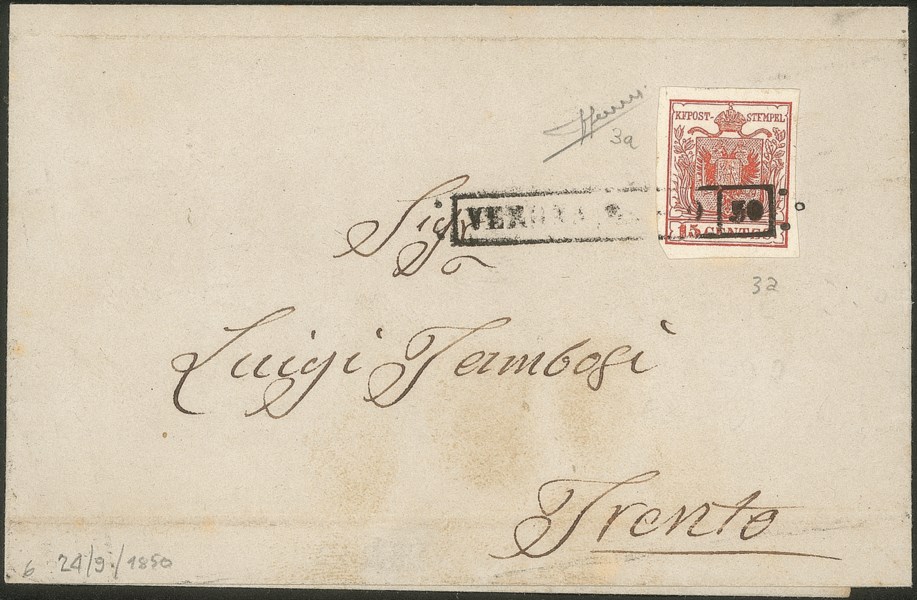 3a
KKPOST-STEMPEL
15 CENTES
VERONA
Sigr
Luigi Tambosi
Trento
32
6 24/9/1850